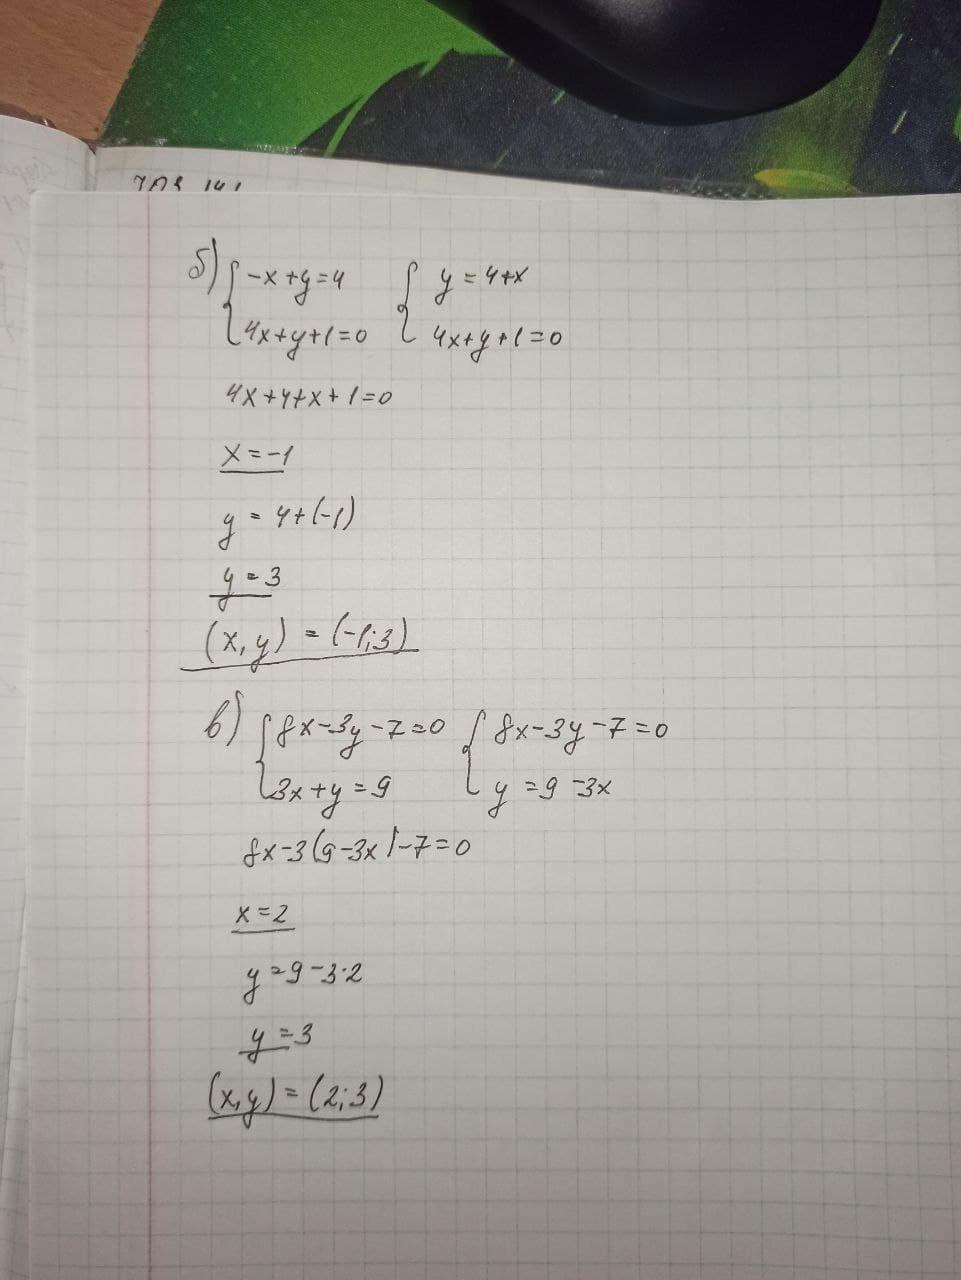 б) { -x+y=4 { y=4+x
4x+y+1=0 4x+y+1=0
4x+4+x+1=0
x=-1
y = 4+(-1)
y = 3
(x, y) = (-1; 3)
в) { 8x-3y-7=0 { 8x-3y-7=0
3x+y=9 y=9-3x
8x-3(9-3x)-7=0
x=2
y=9-3·2
y=3
(x,y) = (2; 3)